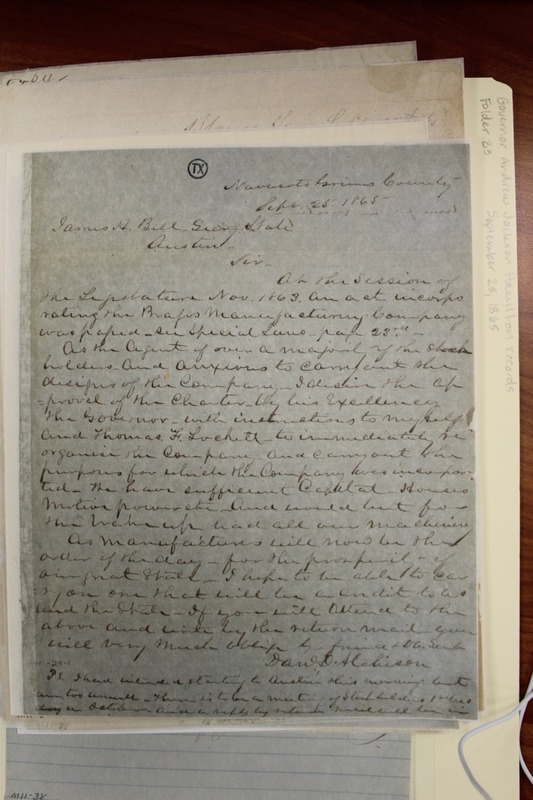 TX
Navasota Grimes County
Sept. 25 1865
James H. Bell Secy State
Austin
Sir
At the Session of
the Legislature Nov. 1863. An act incorpo
rating the Brazos Manufacturing Company
was passed see Special Laws page 23rd
As the Agent of over a majority of the stock
holders. And anxious to carry out the
designs of the Company I desire the ap
proval of the Charter by his Excellency
the Governor with instructions to myself
and Thomas F. Lockett to immediately re
organise the Company and carry out the
purposes for which the Company was incorpora
ted We have sufficient Capital Houses
Motive power etc And would but for
the had all our machinery
As manufactures will now be the
order of the day for the prosperity of
our great State I hope to be able to car
ry on one that will be a credit to us
and the State If you will attend to the
above and write by the return mail you
will very much oblige yr friend & Ob. Servt
Danl. D. Atchison
PS. I had intended starting to Austin this morning but
am too unwell There is to be a meeting of Stockholders
in October And a reply by return mail will
Governor Andrew Jackson Hamilton records
September 25, 1865
Folder 23